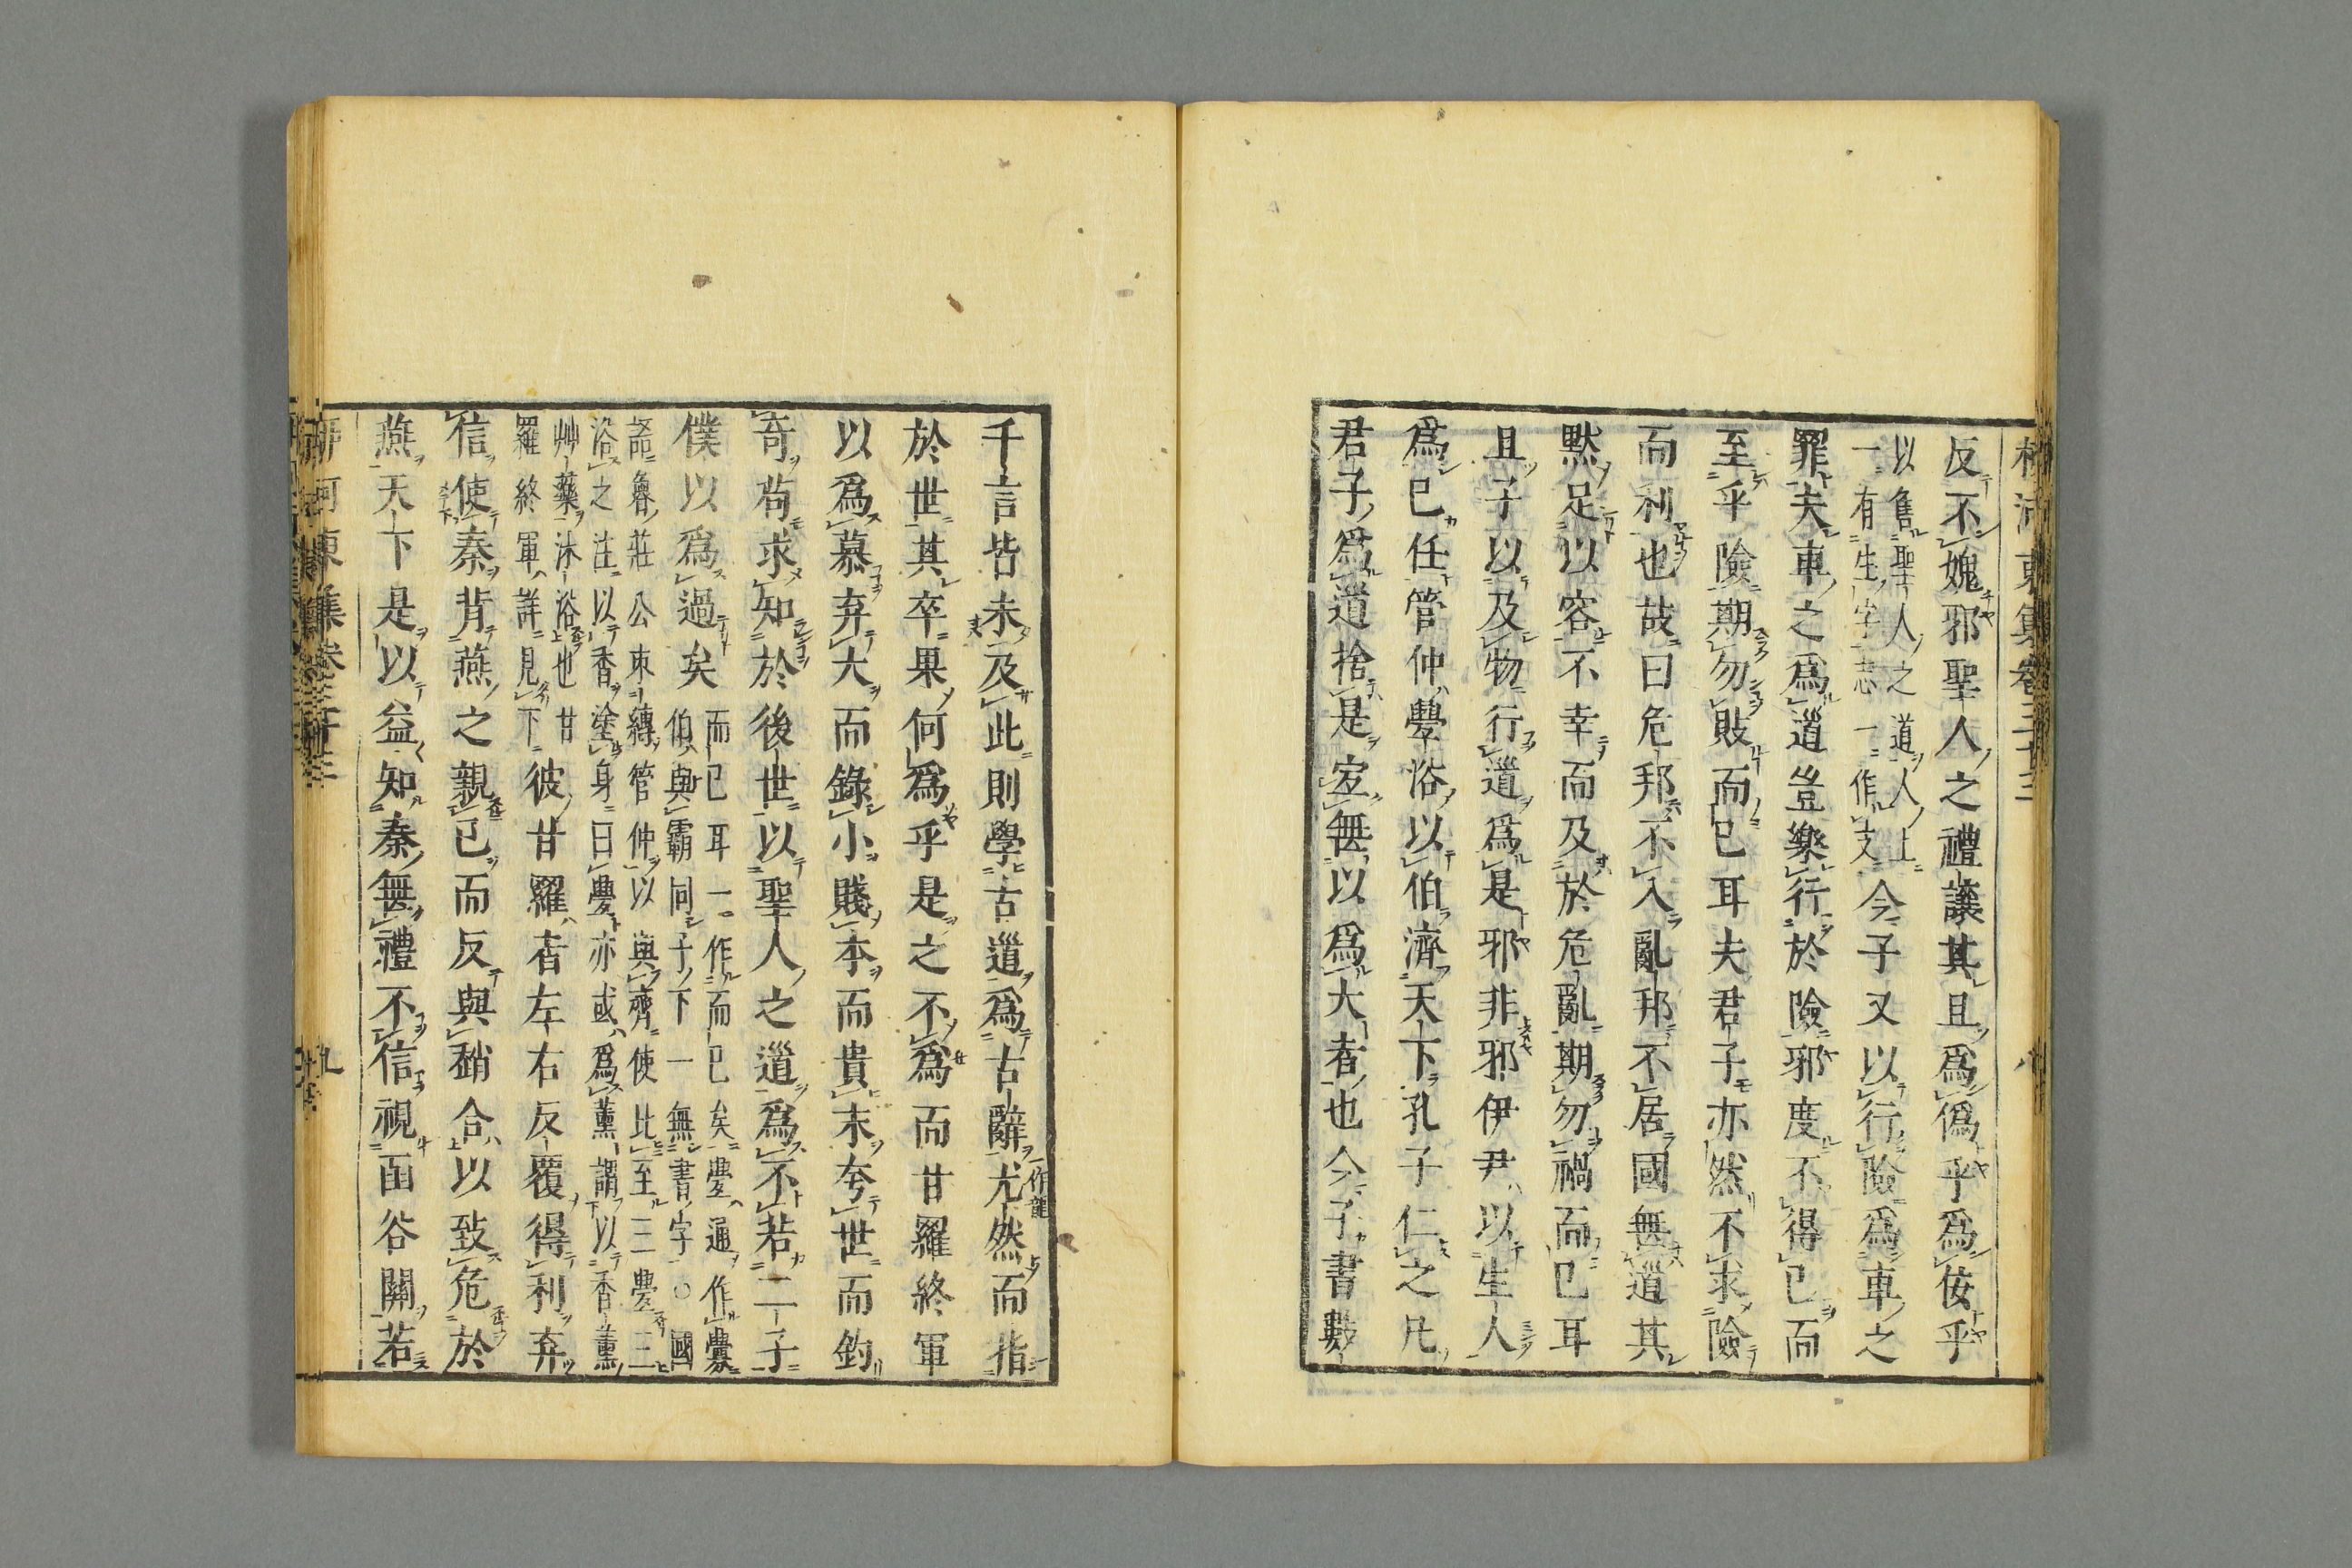 柳河東集卷三十三
八
反不媿邪聖人之禮讓其且爲僞乎爲佞乎
以售聖人之道人上
一有生字志一作支
今子又以行險爲車之
罪夫車之爲道豈樂行於險邪度不得已而
至乎險期勿敗而已耳夫君子亦然不求險
而利也故曰危邦不入亂邦不居國無道其
默足以容不幸而及於危亂期勿禍而已耳
且子以及物行道爲是邪非邪伊尹以生人
爲已任管仲釁浴以伯濟天下孔子仁之凡
君子爲道捨是宜無以爲大者也今子書數
千言皆未及此則學古道爲古辭尤然而指
一作龍
於世其卒果何爲乎是之不爲而甘羅終軍
以爲慕弃大而錄小賤本而貴末夸世而釣
奇苟求知於後世以聖人之道爲不若二子
僕以爲過矣
而已耳一作而已矣釁通作釁
伯與霸同子下一無書字○國
語魯莊公束縛管仲以與齊使比至三釁三
浴之注以香塗身曰釁亦或爲薰謂以香薰
艸藥沐浴也甘
羅終軍詳見下
彼甘羅者左右反覆得利弃
信使秦背燕之親已而反與稍合以致危於
燕天下是以益知秦無禮不信視函谷關若
柳河東集卷三十三
九